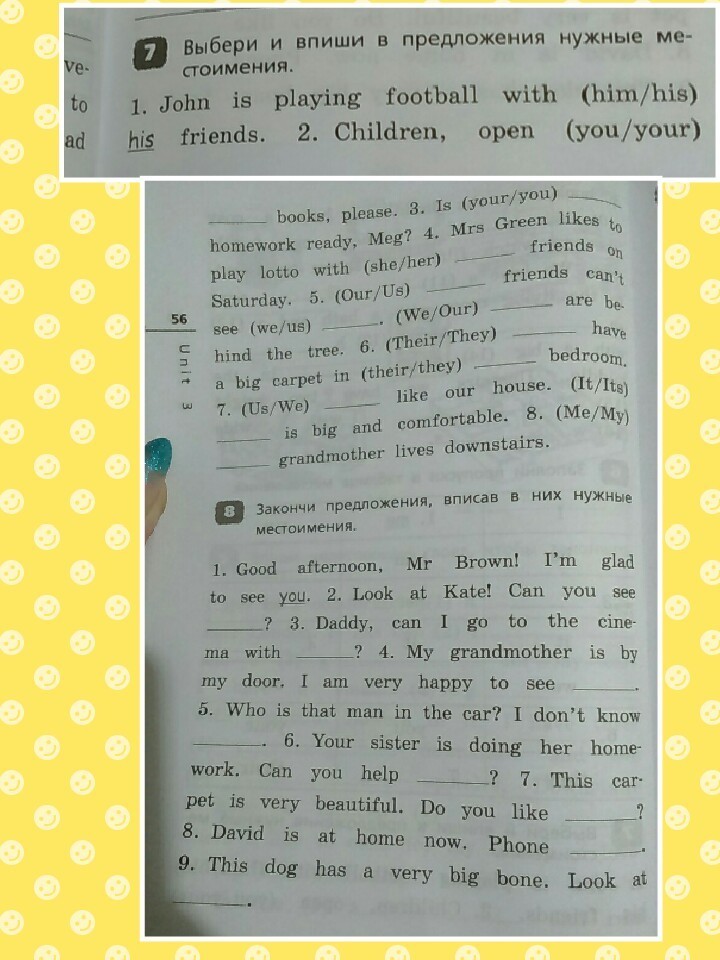 ve-
to
ad
7 Выбери и впиши в предложения нужные ме-
стоимения.
1. John is playing football with (him/his)
his friends. 2. Children, open (you/your)
______ books, please. 3. Is (your/you) ______
homework ready, Meg? 4. Mrs Green likes to
play lotto with (she/her) ______ friends on
Saturday. 5. (Our/Us) ______ friends can't
see (we/us) ______. (We/Our) ______ are be-
hind the tree. 6. (Their/They) ______ have
a big carpet in (their/they) ______ bedroom.
7. (Us/We) ______ like our house. (It/Its)
______ is big and comfortable. 8. (Me/My)
______ grandmother lives downstairs.
56
Unit 3
8 Закончи предложения, вписав в них нужные
местоимения.
1. Good afternoon, Mr Brown! I'm glad
to see you. 2. Look at Kate! Can you see
______? 3. Daddy, can I go to the cine-
ma with ______? 4. My grandmother is by
my door. I am very happy to see ______.
5. Who is that man in the car? I don't know
______. 6. Your sister is doing her home-
work. Can you help ______? 7. This car-
pet is very beautiful. Do you like ______?
8. David is at home now. Phone ______.
9. This dog has a very big bone. Look at
______.